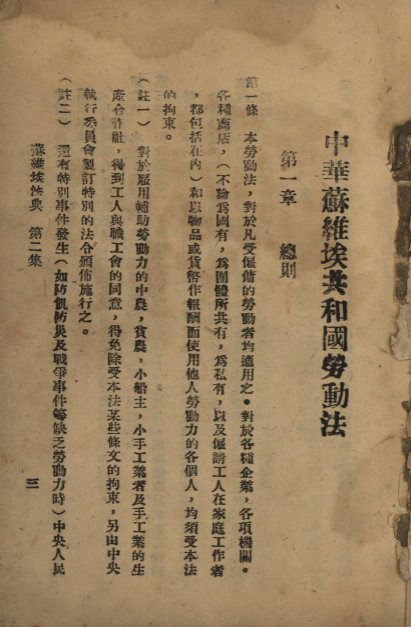 中華蘇維埃共和國勞動法
第一章　總則
第一條　本勞動法，對於凡受僱傭的勞動者均適用之。對於各種企業，各項機關。
各種商店，（不論爲國有，爲團體所共有，爲私有，以及僱請工人在家庭工作者
，都包括在內）和以物品或貨幣作報酬而使用他人勞動力的各個人，均須受本法
的拘束。
（註一）　對於雇用輔助勞動力的中農，貧農，小船主，小手工業者及手工業的生
產合作社，得到工人與職工會的同意，得免除受本法某些條文的拘束，另由中央
執行委員會製訂特別的法令頒佈施行之。
（註二）　遇有特別事件發生（如防飢防災及戰爭事件等缺乏勞動力時）中央人民
蘇維埃法典　第二集
三